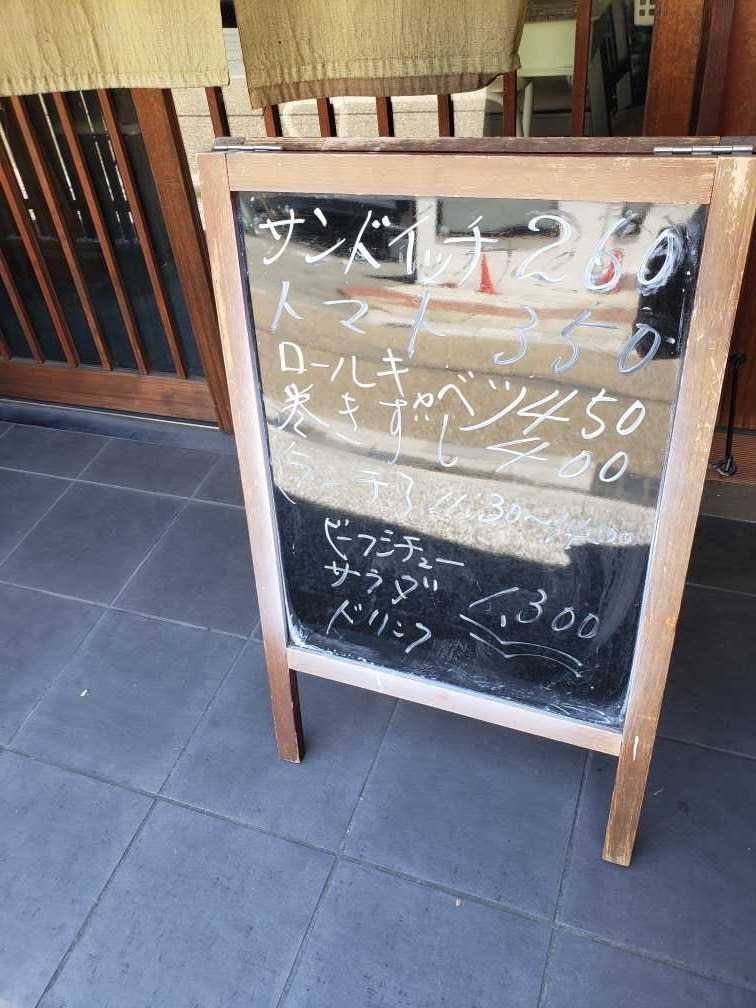 サンドイッチ 260
トマト 350
ロールキャベツ 450
巻きずし 400
ランチ 11.30〜14.00
ビーフシチュー
サラダ
ドリンク 1,300